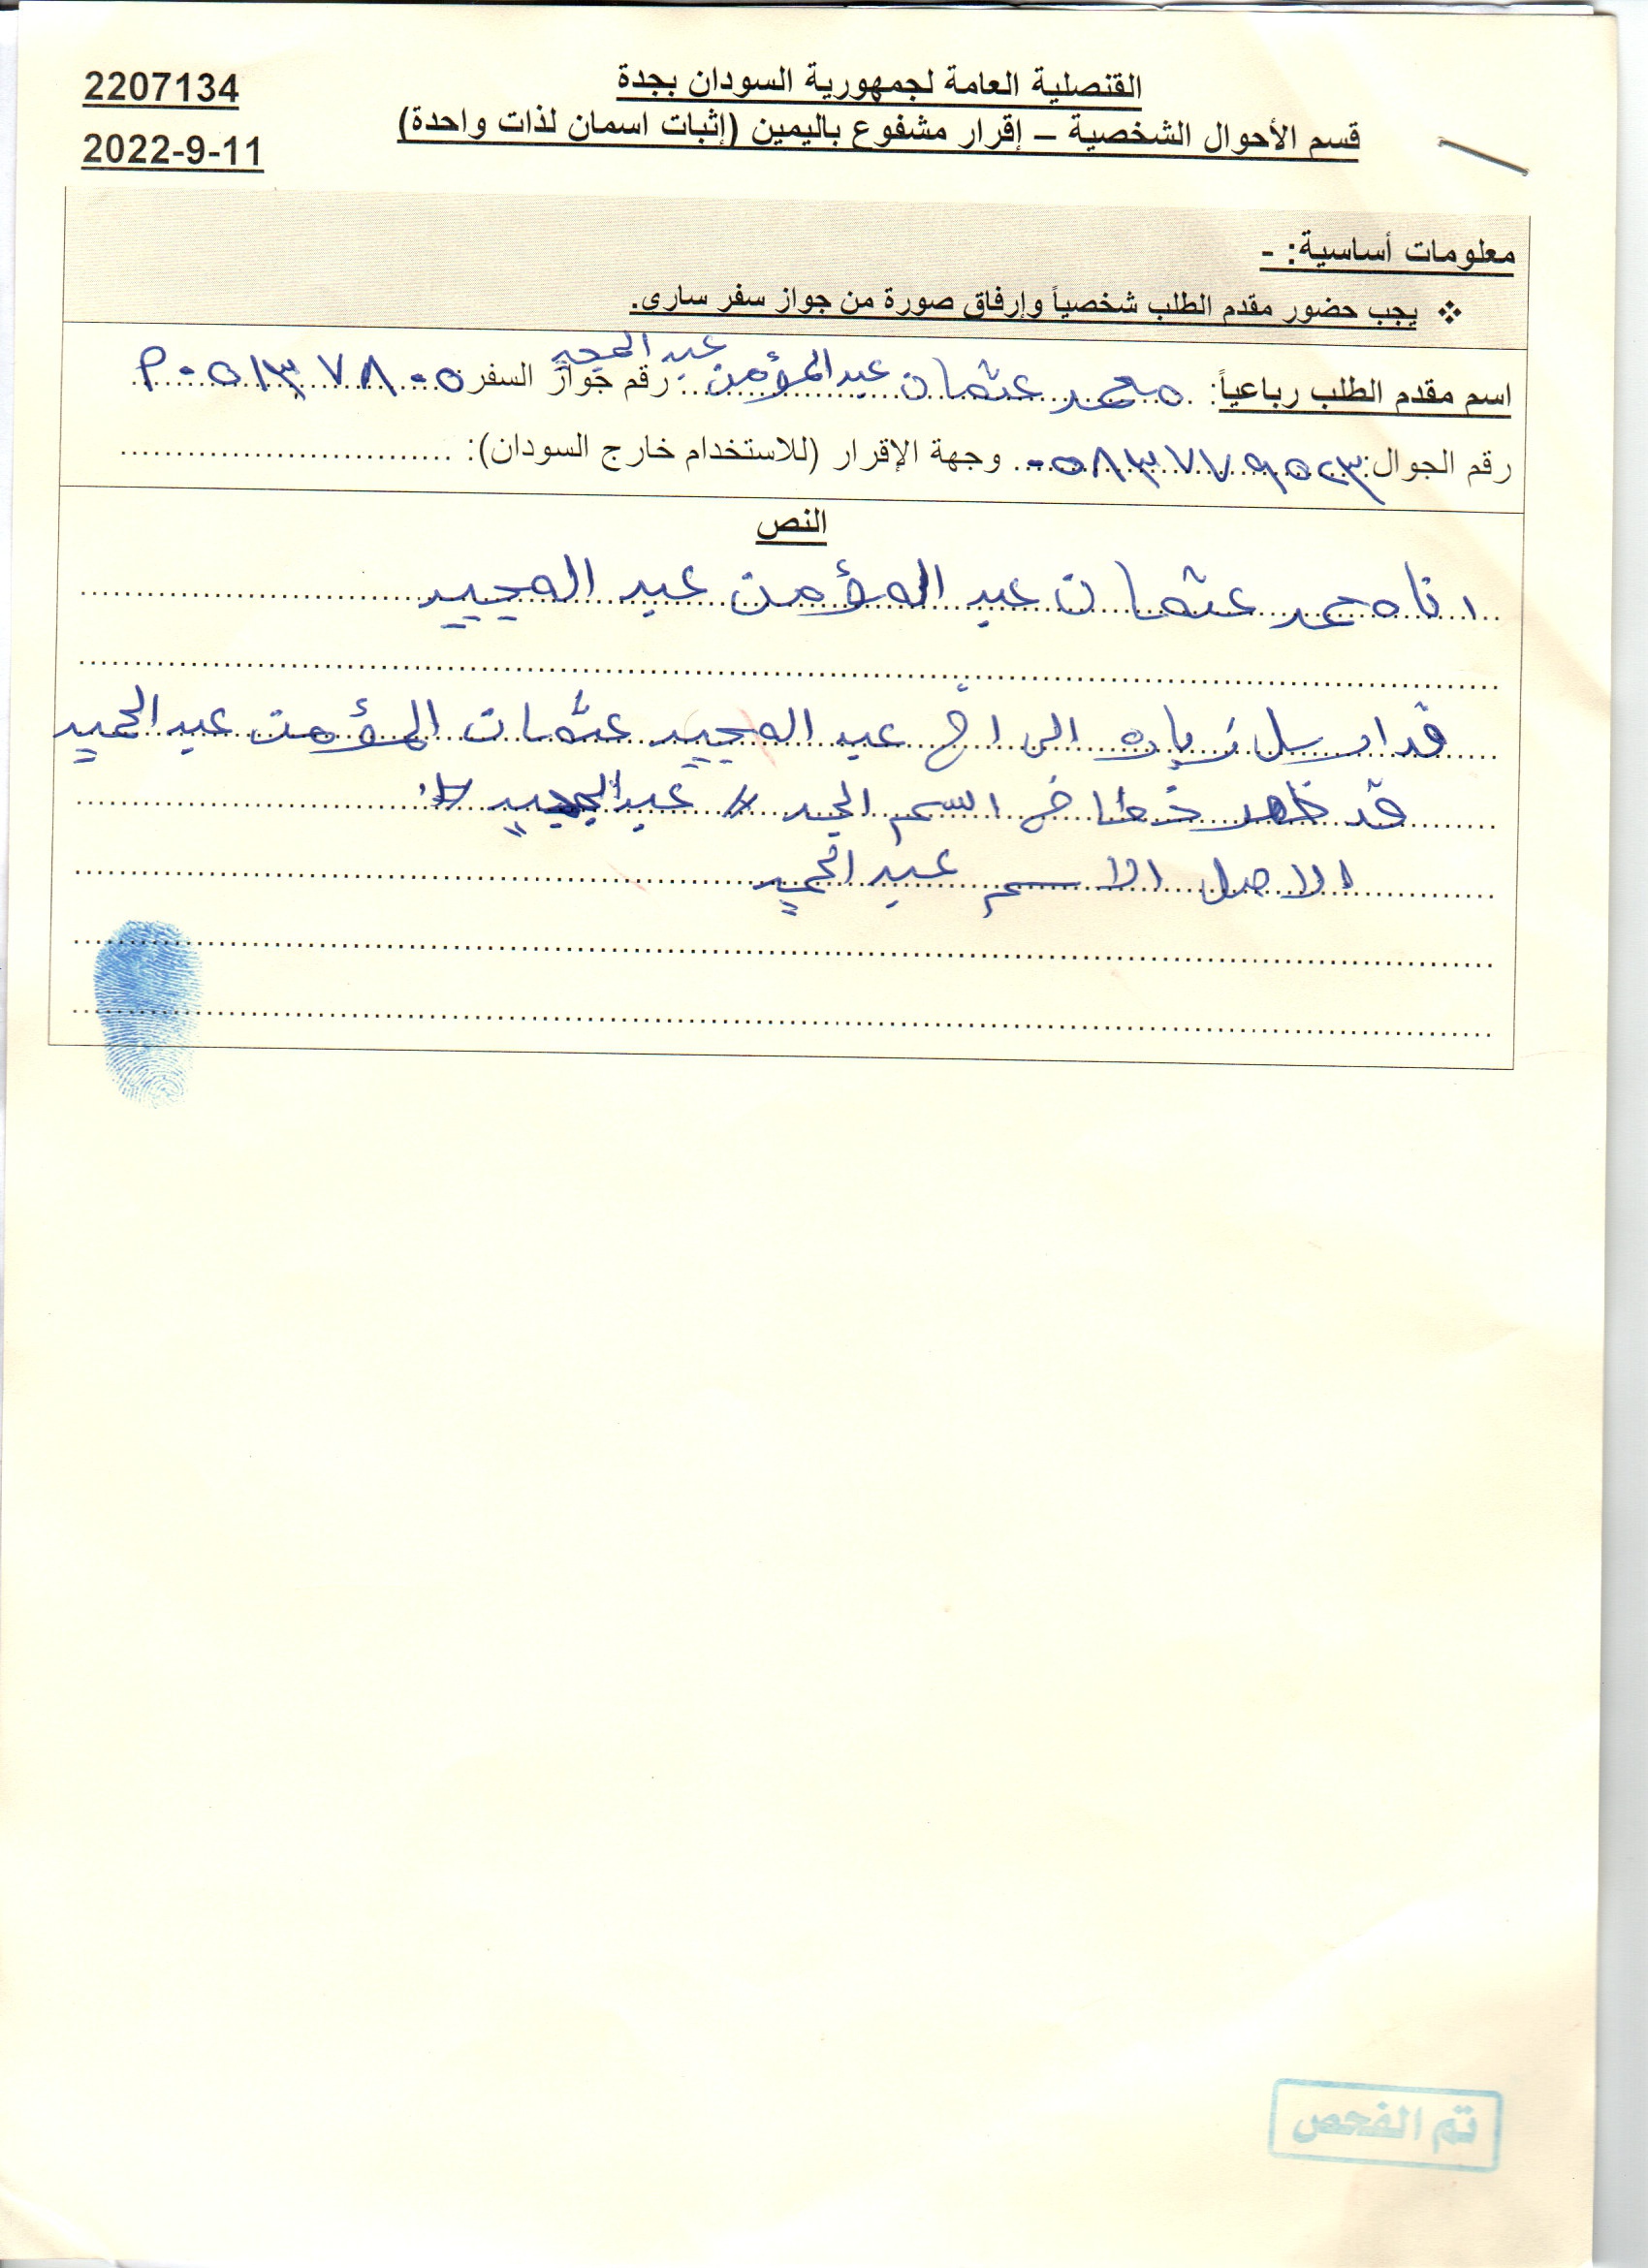 2207134
2022-9-11
القنصلية العامة لجمهورية السودان بجدة
قسم الأحوال الشخصية – إقرار مشفوع باليمين (إثبات اسمان لذات واحدة)
معلومات أساسية: -
❖ يجب حضور مقدم الطلب شخصياً وإرفاق صورة من جواز سفر سارى.
اسم مقدم الطلب رباعياً: محمد عثمان عبد المؤمن عبد المجيد رقم جواز السفر P٠٥١٣٧٨٠٥
رقم الجوال: ٠٥٨٣٧٧٩٥٢٣ وجهة الإقرار (للاستخدام خارج السودان): ..............................
النص
انا محمد عثمان عبد المؤمن عبد المجيد
قد ارسل زياره الى اخ عبد المجيد عثمان المؤمن عبد الحميد
قد ظهر خطا في اسم الجد // عبد المجيد //
الاصل الاسم عبد الحميد
تم الفحص